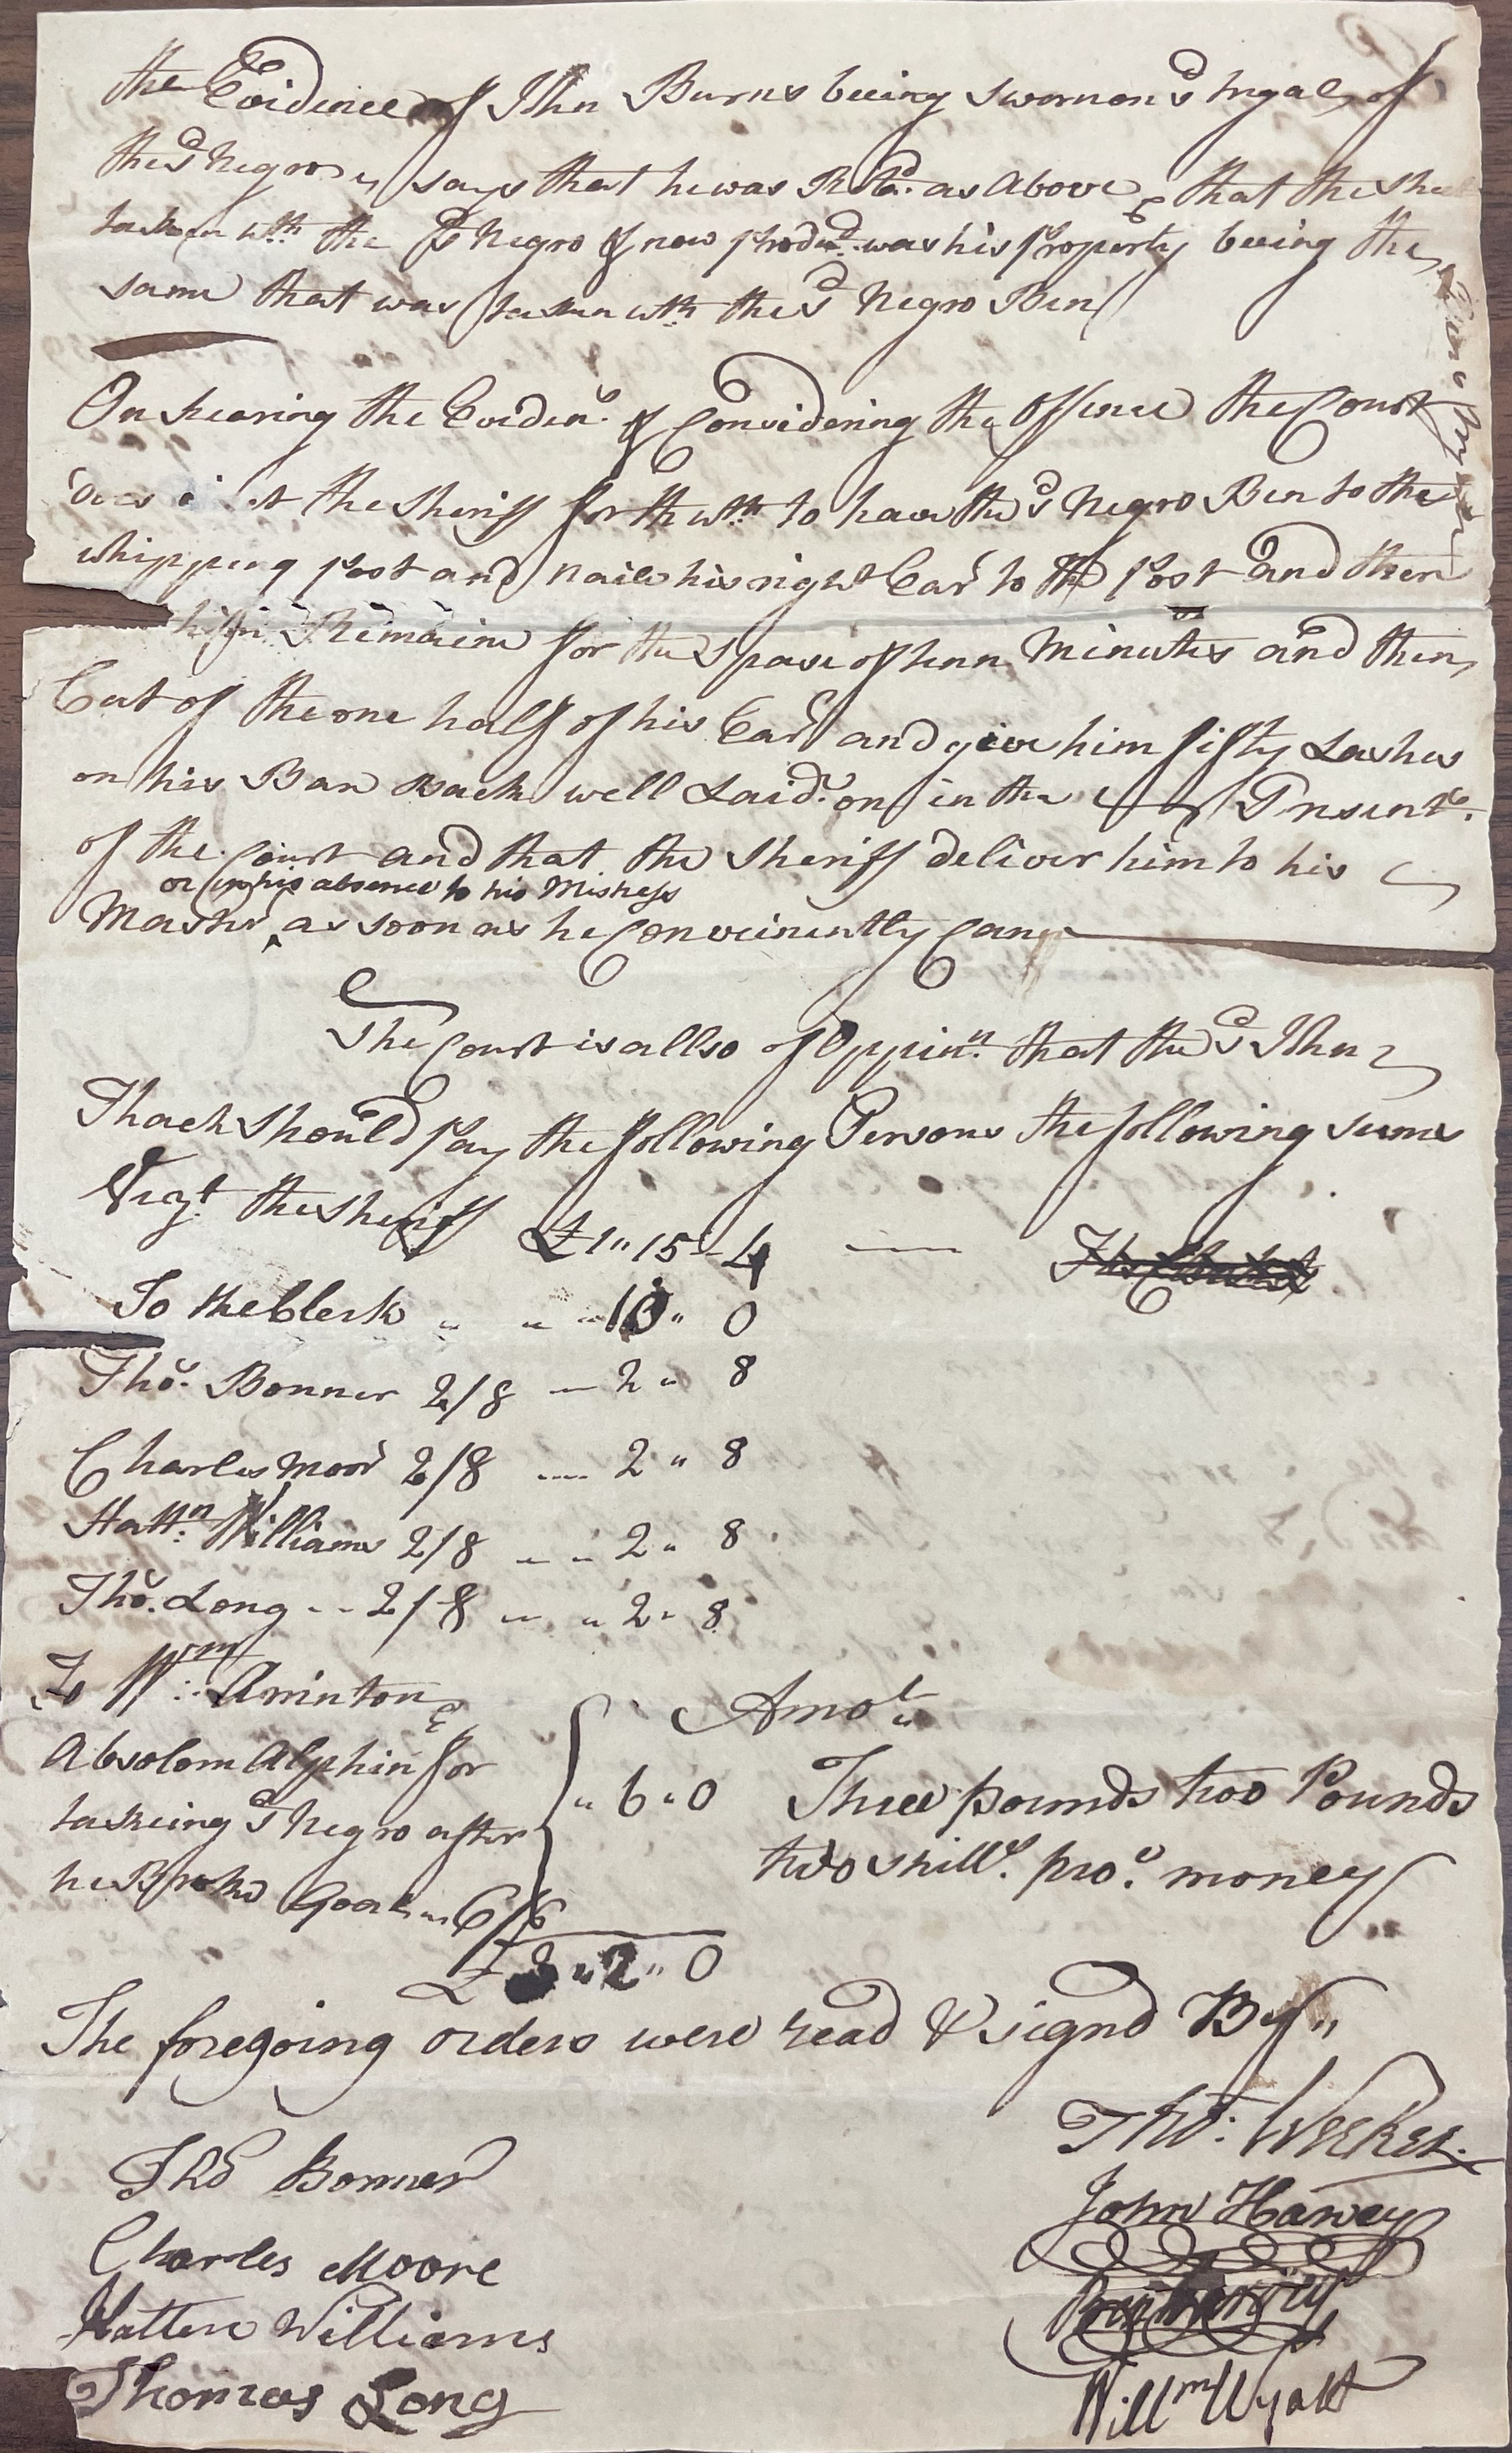 the Evidence of Jthn Burns beeing sworn on sd tryal of
the sd Negro says that he was R as Above & that the
taken wth the sd Negro & now produd was his property beeing the
same that was taken wth the sd Negro Ben
On hearing the Eviden.e & Considering the Offence the Court
does the Sheriff forthwth to have the sd Negro Ben to the
whipping post and naile his right Ear to the post and there
Remaine for the Space of tenn Minuttes and then
Cut of the one half of his Ear and give him fifty Lashes
on his Bare Back well Laid on in the Presents
of the Court and that the Sheriff deliver him to his
or in his absence to his Mistress
Master ^ as soon as he Conveinently Can
The Court is allso of Oppinn that the sd Jthn
Thach should pay the following Persons the following sums
Vizt the Sheriff £1 " 15 - 4
To the Clerk " " " 10 " 0
Tho.s Bonner 2/8 — 2 " 8
Charles Moor 2/8 .... 2 " 8
Hattn Williams 2/8 " " 2 " 8
Tho.s Long - - 2/8 " " 2 " 8
To Wm Arrinton &
Absolom Alphin for
takeing sd Negro after
he Broke Goal " 6/6
" 6 " 0
Amot
Three pounds two Pounds
two shills. pro.c money
£ 3 " 2 " 0
The foregoing orders were read & signd By "
Tho.s Weekes
John Harvey
Willm Wyatt
Tho.s Bonner
Charles Moore
Hatten Williams
Thomas Long